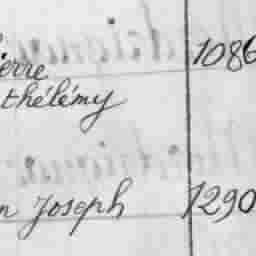 ierre 1086
thélémy
n Joseph 1290